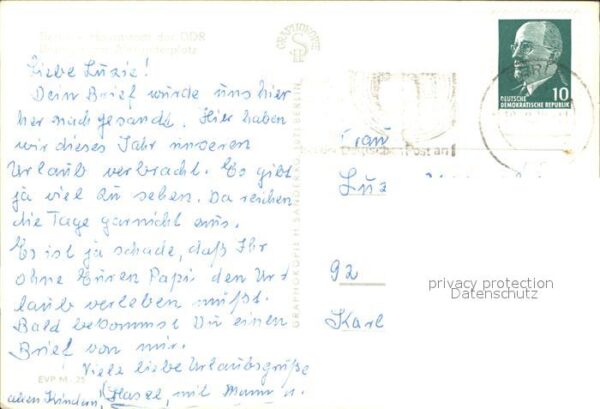 Berlin - Hauptstadt der DDR
Liebe Luzie!
Dein Brief wurde uns hier
her nachgesandt. Hier haben
wir dieses Jahr unseren
Urlaub verbracht. Es gibt
ja viel zu sehen. Da reichen
die Tage garnicht aus.
Es ist ja schade, daß Ihr
ohne Euren Papi den Ur=
laub verleben müßt.
Bald bekommst Du einen
Brief von mir.
Viele liebe Urlaubsgrüße
Hasel, mit Mann u.
allen Kindern
EVP M -,25
GRAPHOKOPIE
GRAPHOKOPIE H. SANDER KG, BERLIN
10
DEUTSCHE
DEMOKRATISCHE REPUBLIK
Deutschen Post an!
Frau
Luz
92
Karl
privacy protection
Datenschutz